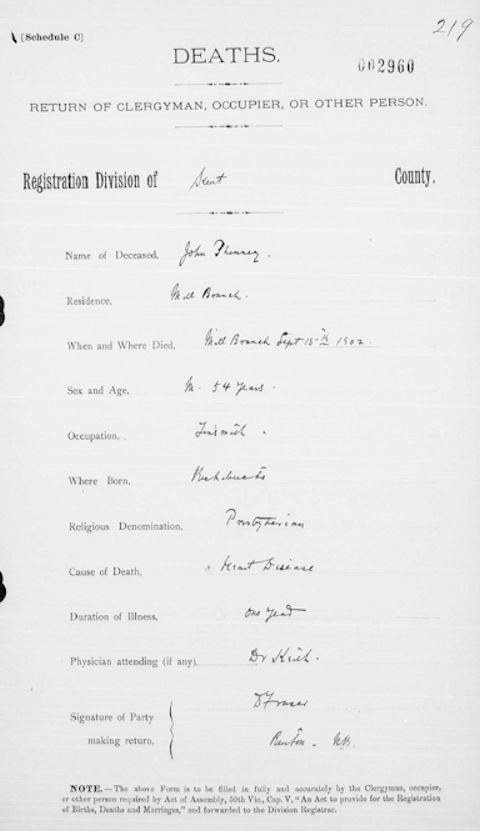 219
[Schedule C]
DEATHS.
002960
RETURN OF CLERGYMAN, OCCUPIER, OR OTHER PERSON.
Registration Division of Kent County.
Name of Deceased, John Phinney.
Residence, Mill Branch.
When and Where Died, Mill Branch Sept 15th 1902.
Sex and Age, M. 54 years.
Occupation, Tinsmith.
Where Born, Richibucto
Religious Denomination, Presbyterian
Cause of Death, Heart Disease
Duration of Illness, One year
Physician attending (if any). Dr Keith.
Signature of Party D Fraser
making return, Rexton. NB.
NOTE.—The above Form is to be filled in fully and accurately by the Clergyman, occupier,
or other person required by Act of Assembly, 50th Vic., Cap. V, "An Act to provide for the Registration
of Births, Deaths and Marriages," and forwarded to the Division Registrar.